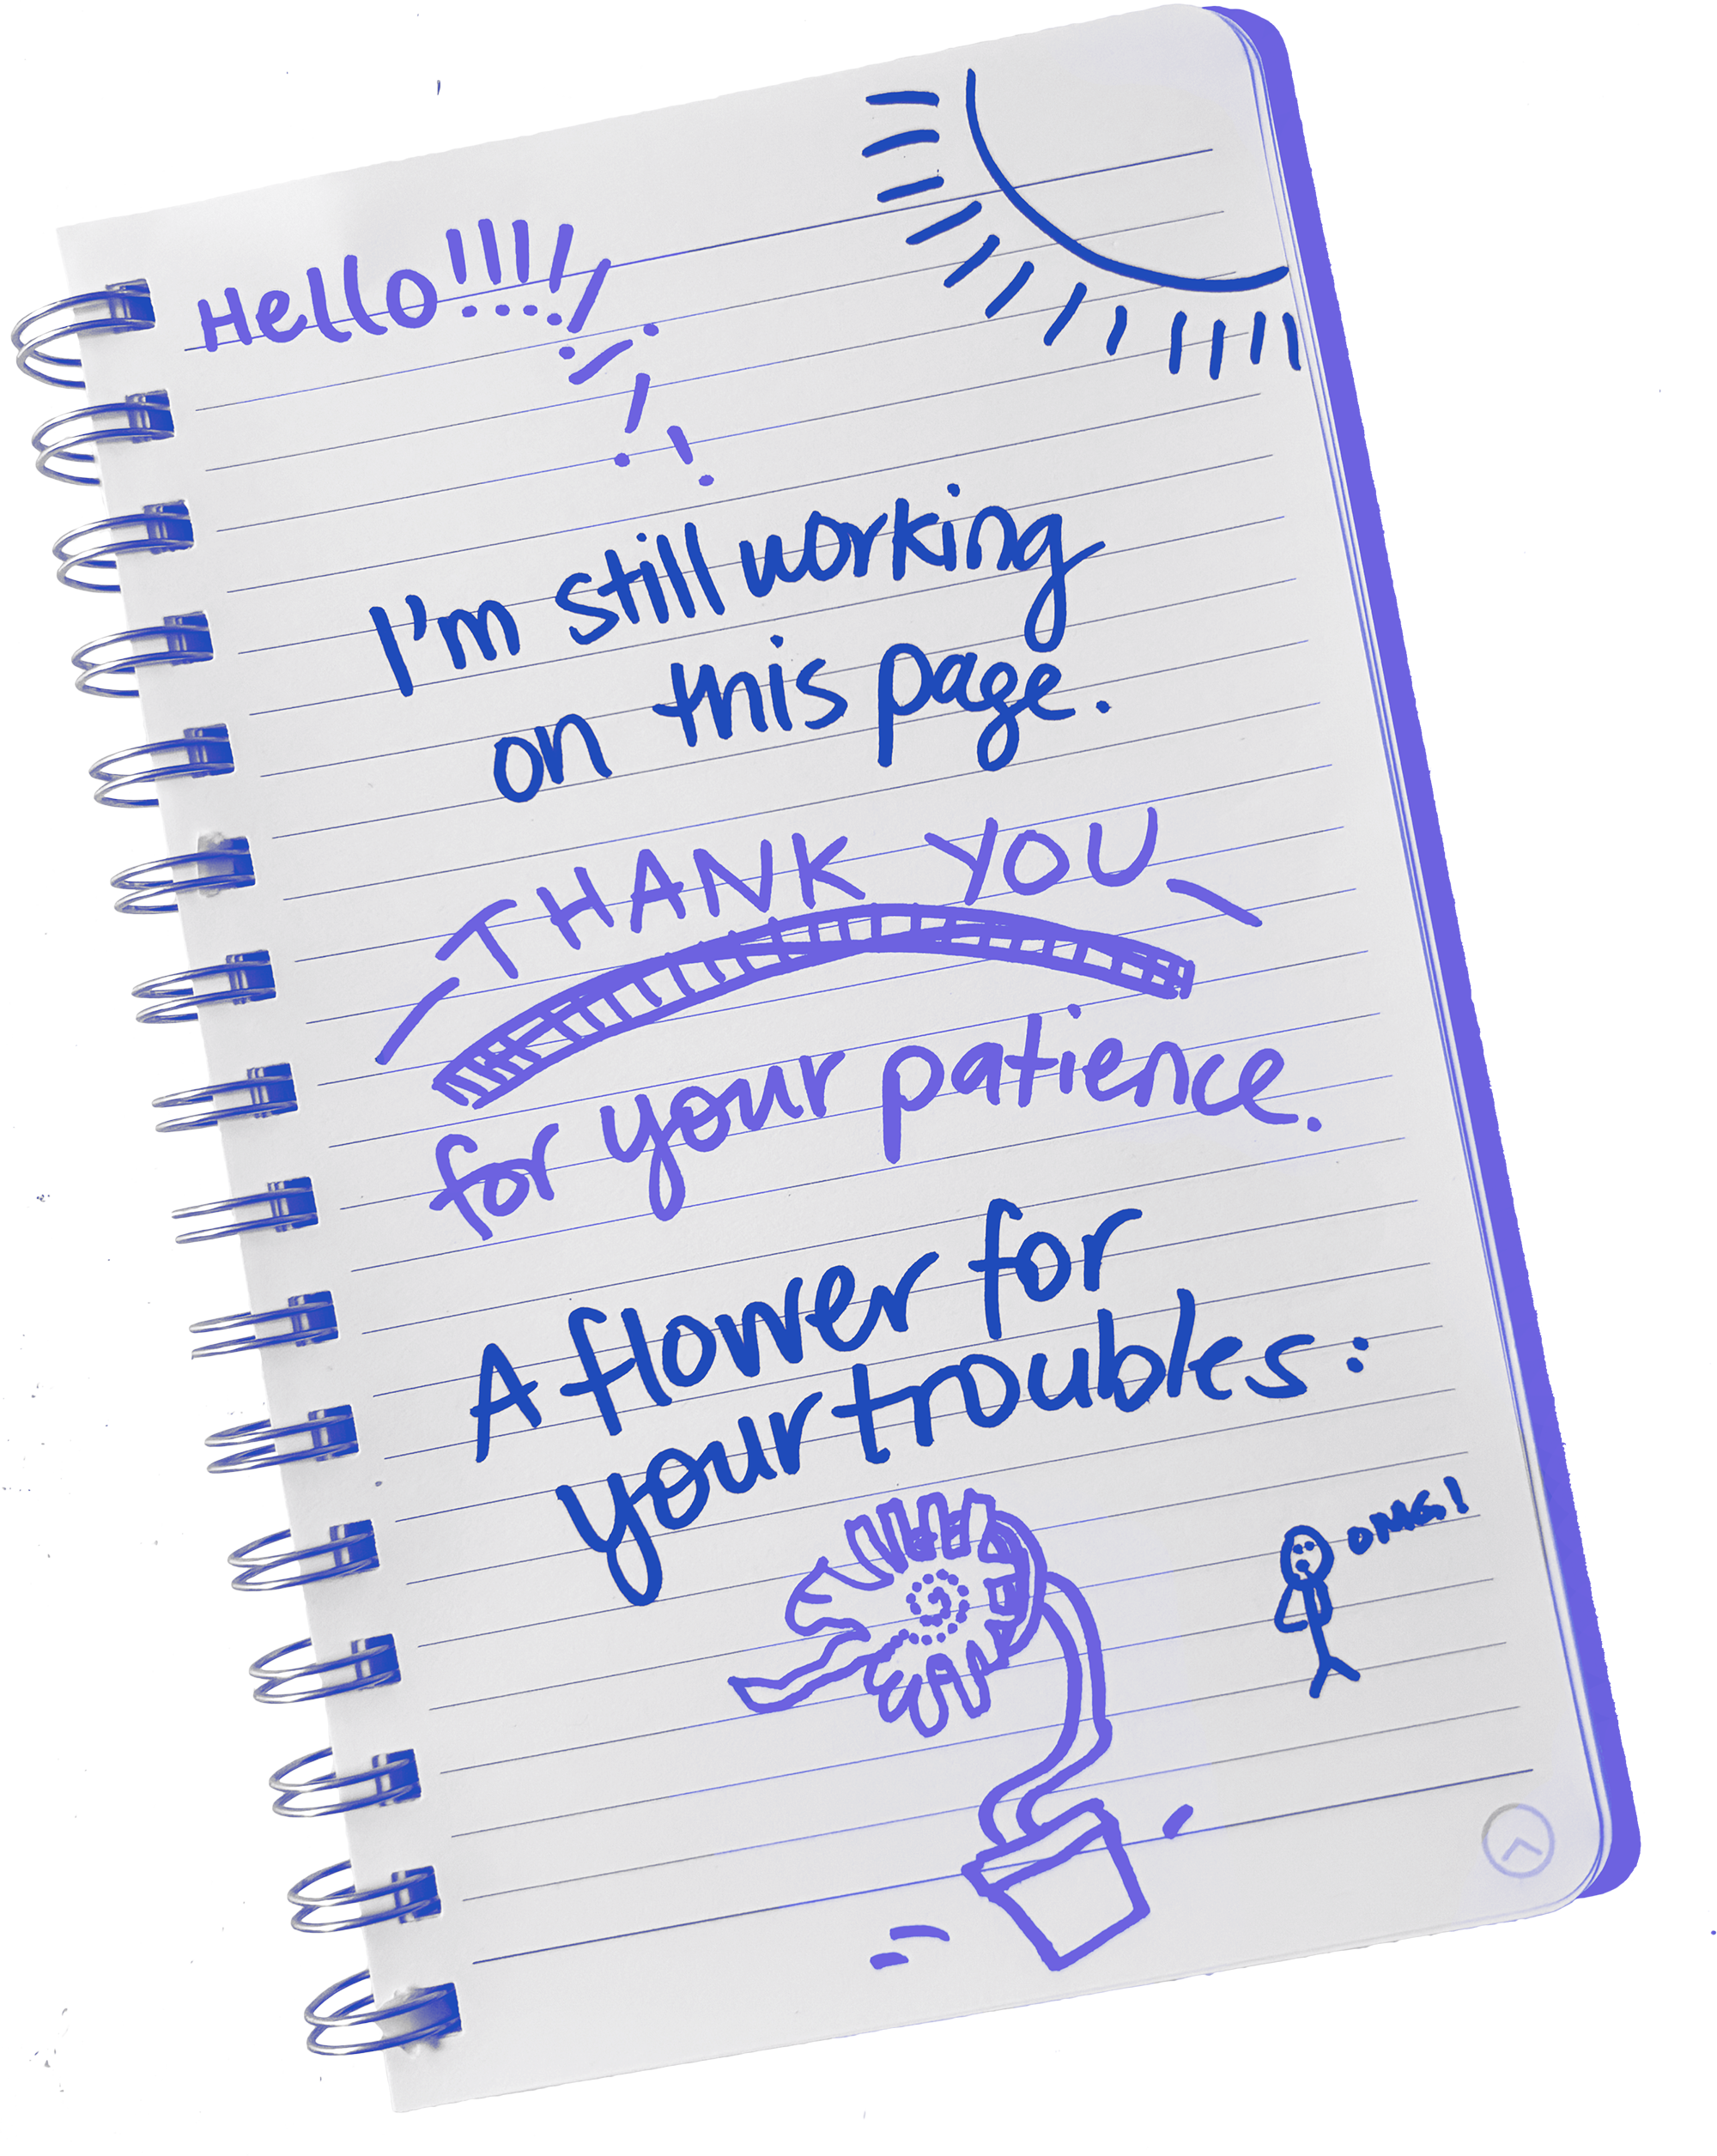 Hello!!!!!!!!
I'm still working
on this page.
THANK YOU
for your patience.
A flower for
your troubles:
OMG!